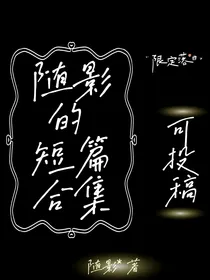 随影
的
短篇
合集
限定落日
可投稿
随影 著